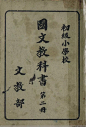 初級小學校
國文教科書
第二冊
文教部